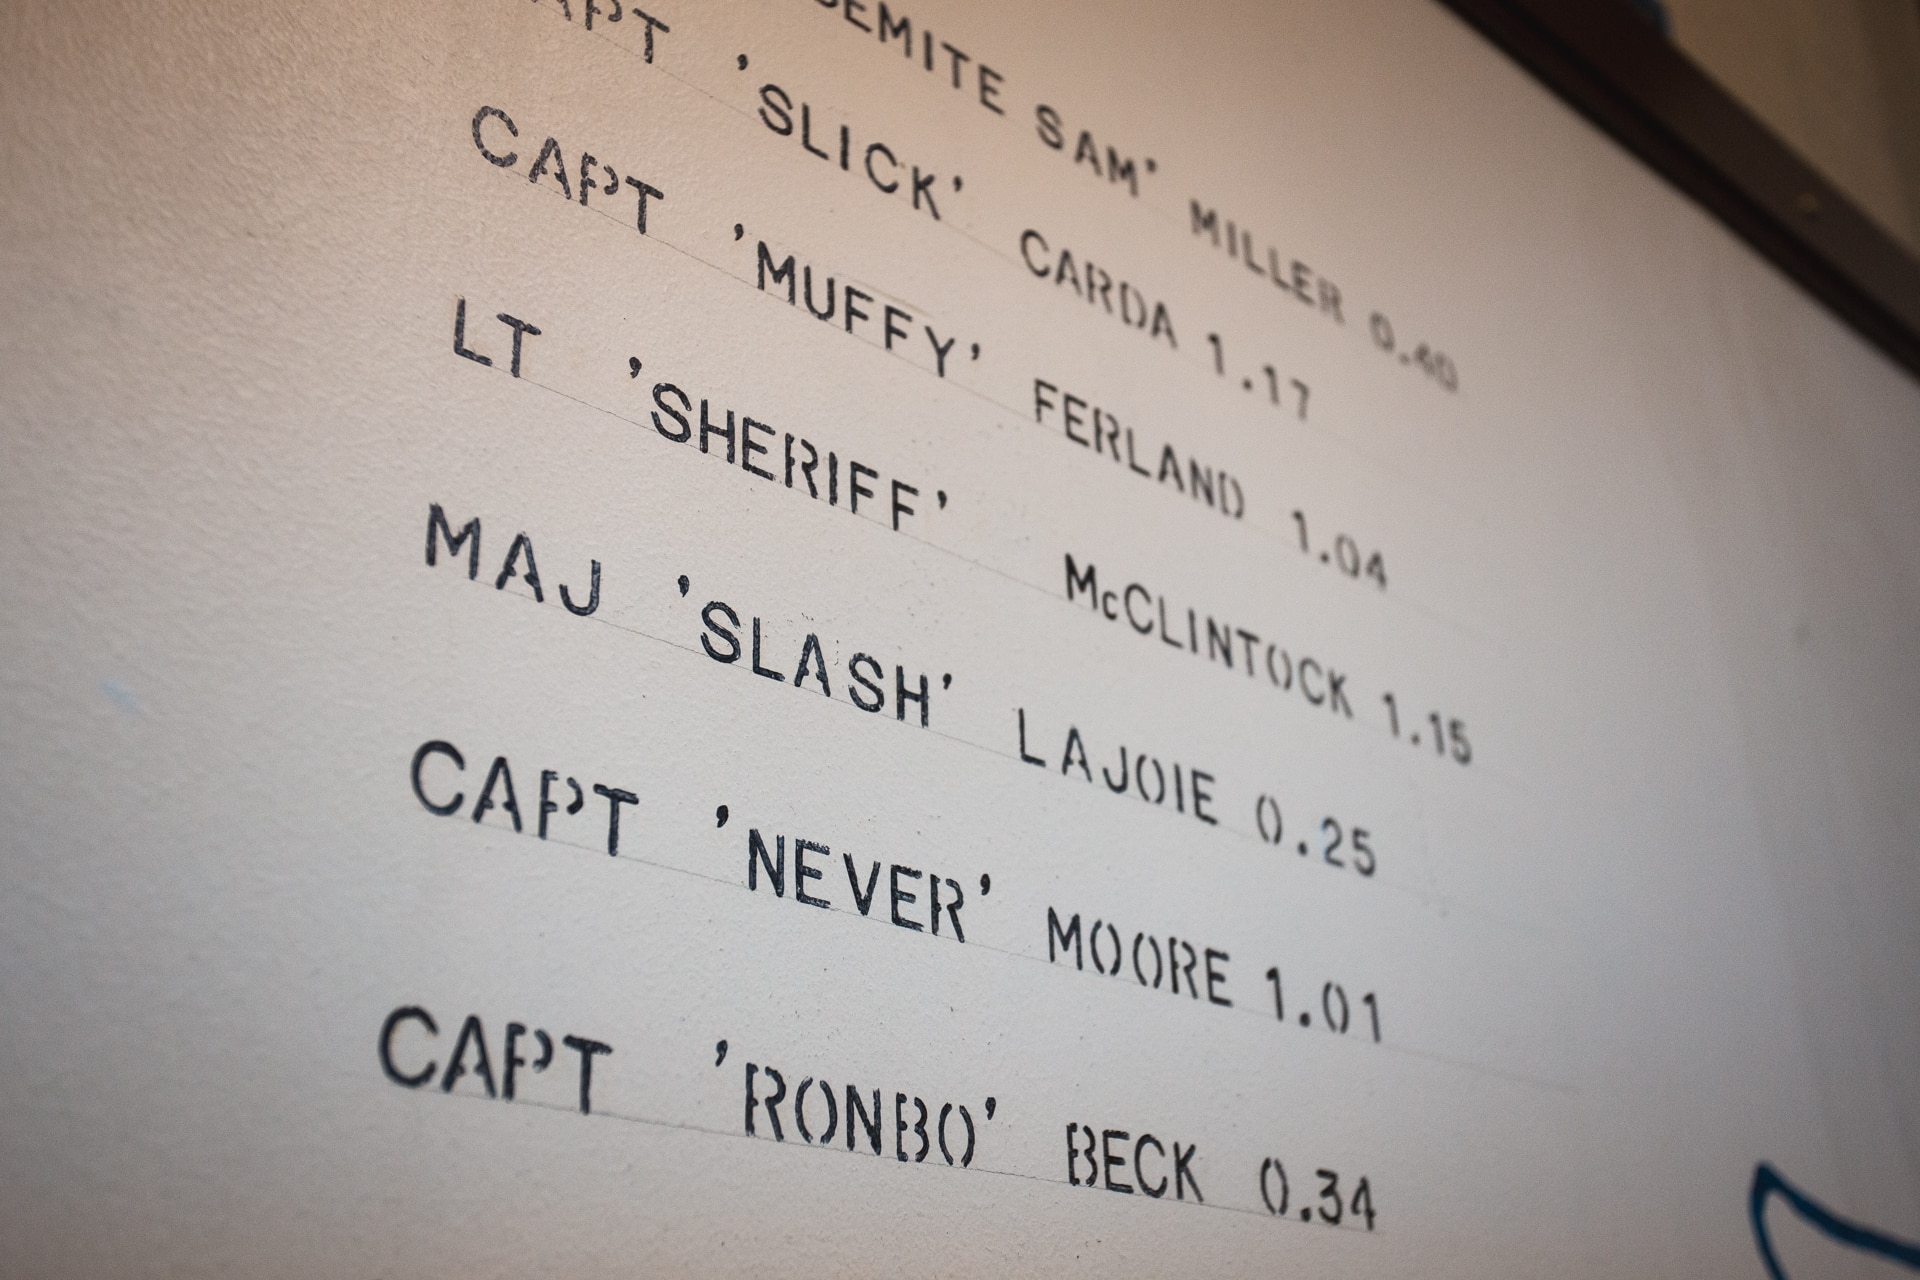 SEMITE SAM' MILLER 0.40
CAPT 'SLICK' CARDA 1.17
CAPT 'MUFFY' FERLAND 1.04
LT 'SHERIFF' McCLINTOCK 1.15
MAJ 'SLASH' LAJOIE 0.25
CAPT 'NEVER' MOORE 1.01
CAPT 'RONBO' BECK 0.34